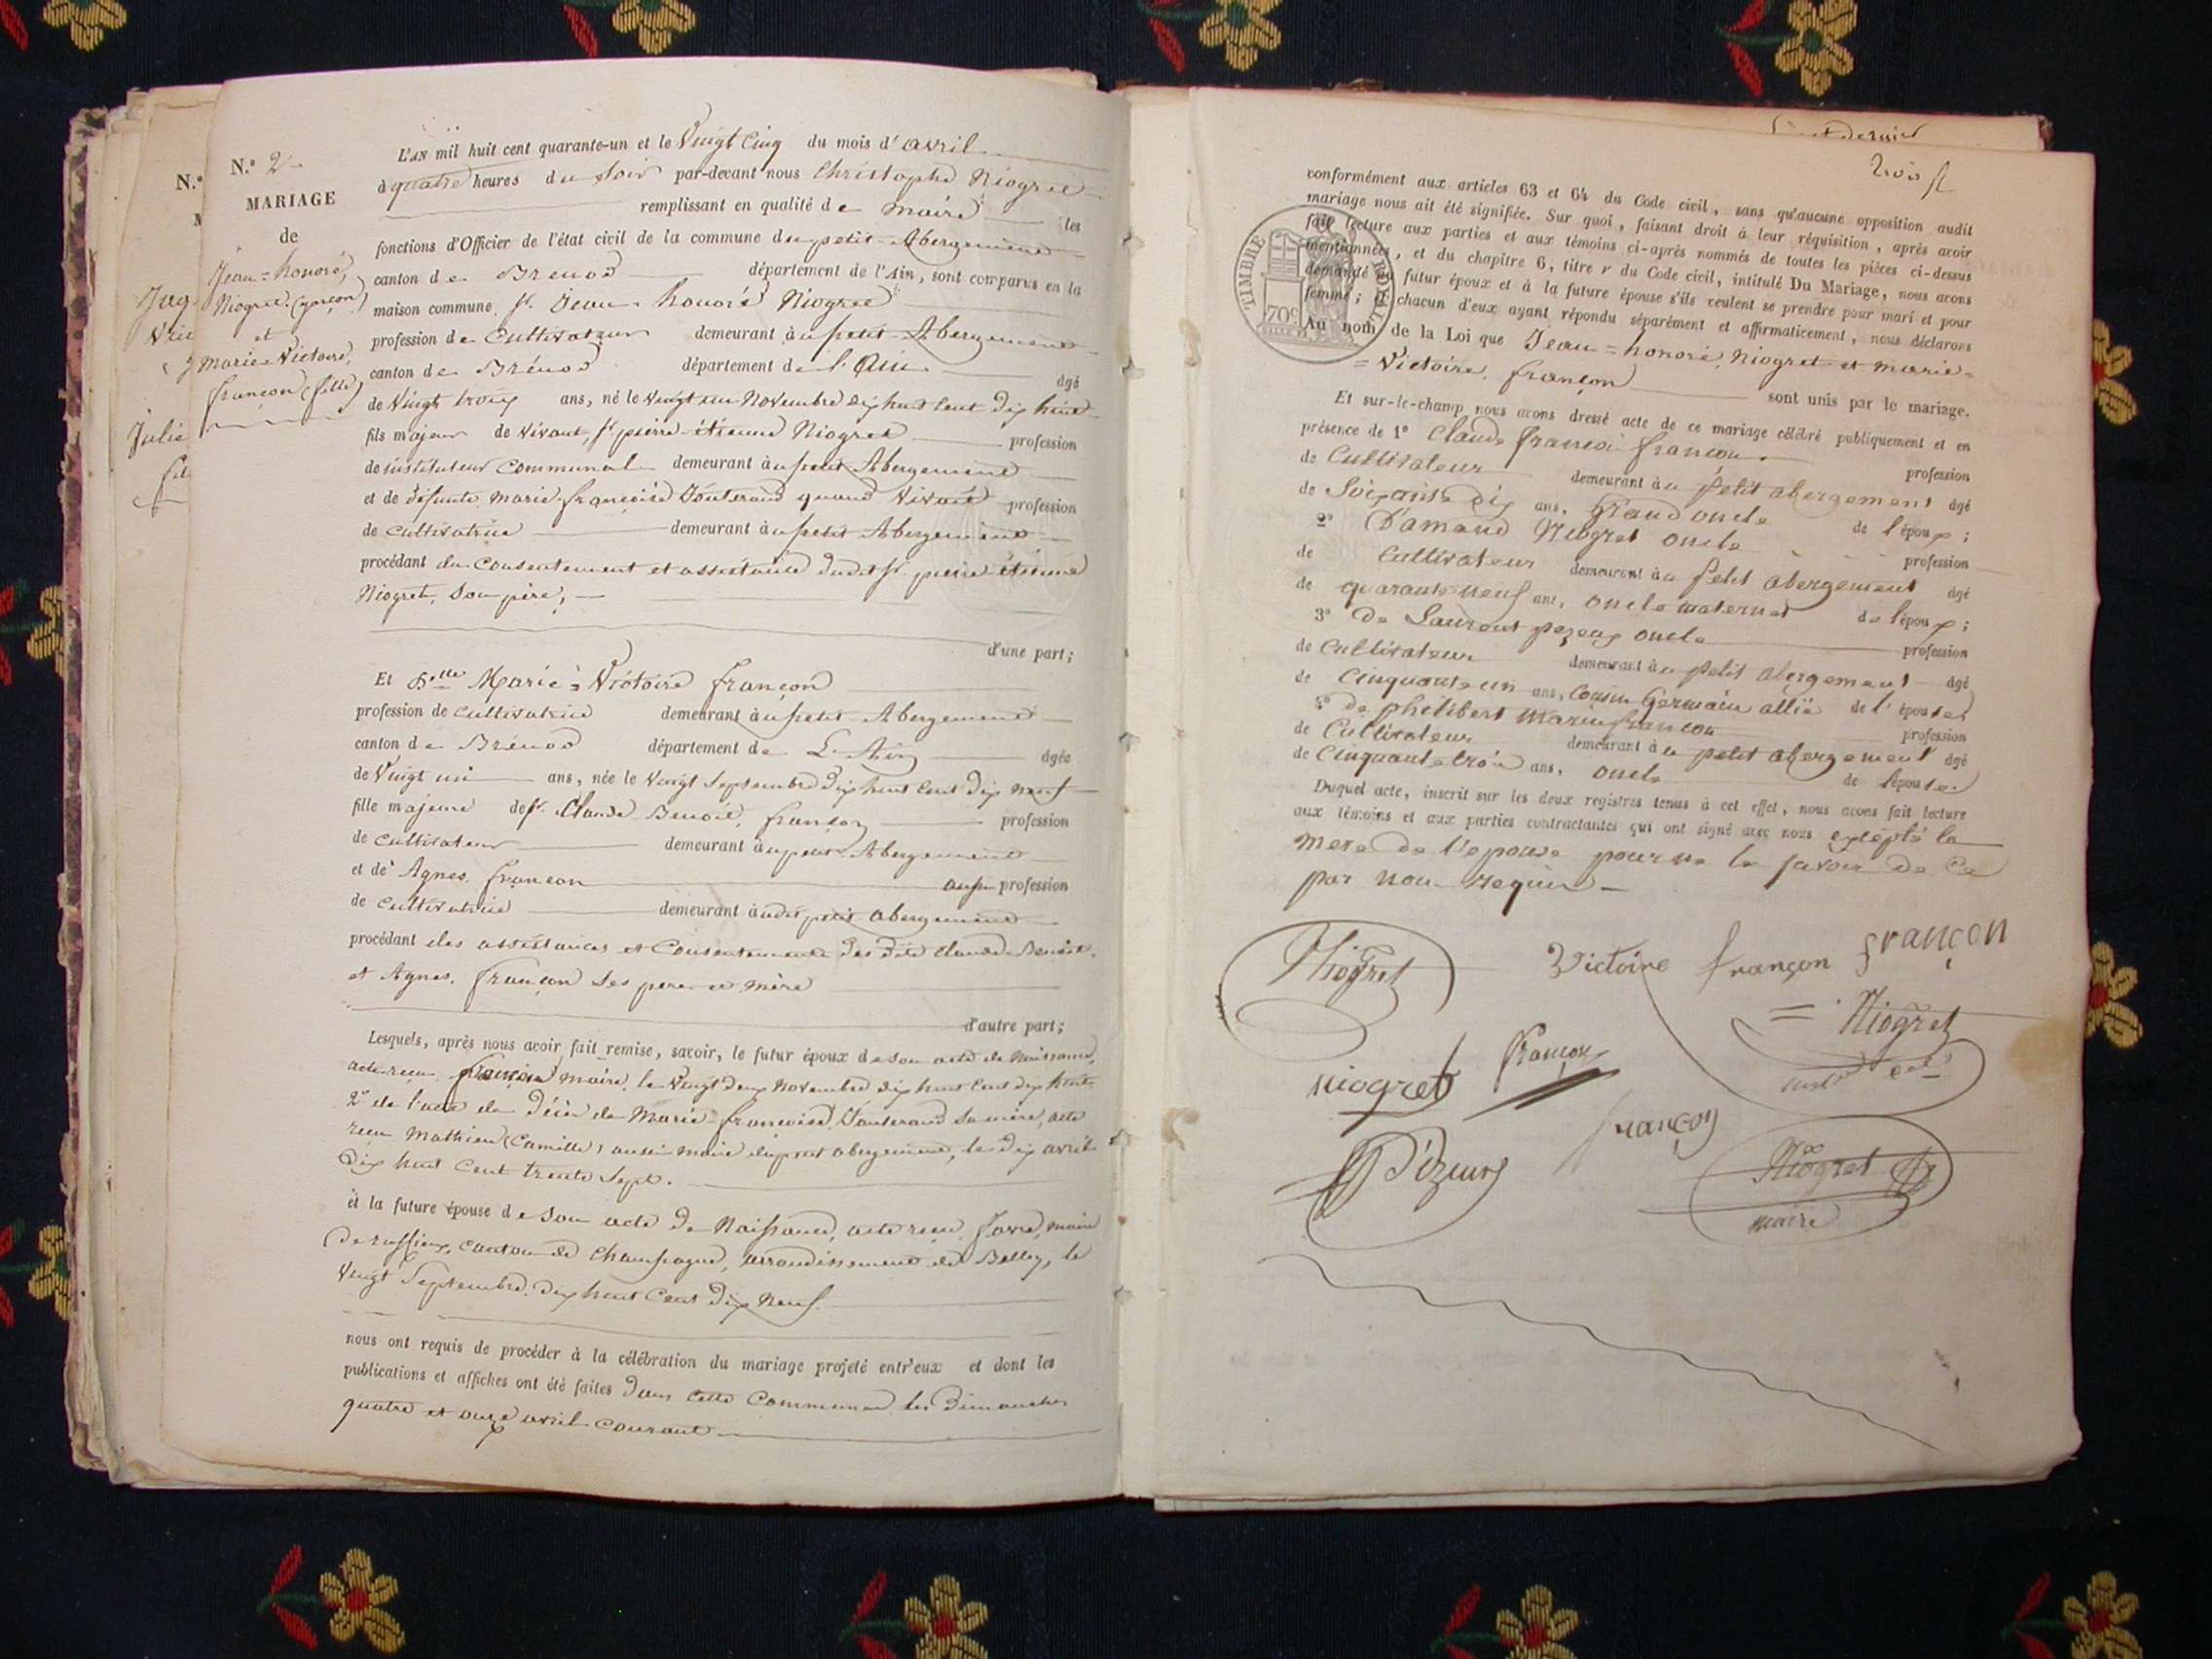 N.º 2
MARIAGE
de
Jean=honoré,
Niogret (garçon)
et
Marie=Victoire,
françon (fille)
L'an mil huit cent quarante-un et le Vingt Cinq du mois d'avril
à quatre heures du Soir par-devant nous Christophe Niogret
remplissant en qualité de maire les
fonctions d'Officier de l'état civil de la commune du petit Abergement
canton de Brenod département de l'Ain, sont comparus en la
maison commune, Sr. Jean-honoré Niogret
profession de Cultivateur demeurant à u petit Abergement
canton de Brénod département de l'Ain âgé
de Vingt deux ans, né le vingt un Novembre dix huit Cent dix huit
fils majeur de vivant, Sr. pierre-étienne Niogret profession
de instituteur Communal demeurant à u petit Abergement
et de défunte, Marie-françoise quand vivait profession
de Cultivatrice demeurant à u petit Abergement
procédant du Consentement et assistance dudit Sr. pierre étienne
Niogret, Son père,
d'une part;
Et Delle Marie=Victoire françon
profession de Cultivatrice demeurant à u petit Abergement
canton de Brénod département de L'Ain âgée
de Vingt un ans, née le vingt Septembre dix huit Cent dix neuf
fille majeure de Sr. Claude Benoit, françon profession
de Cultivateur demeurant à u petit Abergement
et de Agnes, françon aussi profession
de Cultivatrice demeurant à udit petit abergement
procédant des assistances et Consentements des dits Claude Benoit,
et Agnes, françon Ses père et mère
d'autre part;
Lesquels, après nous avoir fait remise, savoir, le futur époux de Son acte de Naissance,
acte reçu maire, le Vingt deux Novembre dix huit Cent dix huit
2º de l'acte de décès de Marie-françoise, Sa mère, acte
reçu Mathieu (Camille) aussi maire du petit abergement, le dix avril
dix huit Cent trente Sept.
et la future épouse de Son acte de Naissance, acte reçu, favre, maire
de ruffieux, Canton de Champagne, arrondissement de Belley, le
Vingt Septembre dix huit Cent dix Neuf.
nous ont requis de procéder à la célébration du mariage projeté entr'eux et dont les
publications et affiches ont été faites dans cette Commune les Dimanches
quatre et onze avril Courant
trois
conformément aux articles 63 et 64 du Code civil, sans qu'aucune opposition audit
mariage nous ait été signifiée. Sur quoi, faisant droit à leur réquisition, après avoir
fait lecture aux parties et aux témoins ci-après nommés de toutes les pièces ci-dessus
mentionnées, et du chapitre 6, titre V du Code civil, intitulé Du Mariage, nous avons
demandé au futur époux et à la future épouse s'ils veulent se prendre pour mari et pour
femme; chacun d'eux ayant répondu séparément et affirmativement, nous déclarons
Au nom de la Loi que Jean=honoré, Niogret et Marie=
=Victoire, françon sont unis par le mariage.
TIMBRE ROYAL
70c
Et sur-le-champ nous avons dressé acte de ce mariage célébré publiquement et en
présence de 1º Claude françoi françon. profession
de Cultivateur demeurant à u petit abergement âgé
de Soixante dix ans, Grand oncle de l'époux;
2º D'amand Niogret oncle profession
de Cultivateur demeurant à u petit abergement âgé
de quarante neuf ans, oncle maternel de l'époux;
3º de Laurent pezeux oncle profession
de Cultivateur demeurant à u petit abergement âgé
de Cinquante un ans, Cousin Germain allié de l'épouse;
4º de philibert Marie françon profession
de Cultivateur demeurant à u petit abergement âgé
de Cinquante trois ans, oncle de l'épouse.
Duquel acte, inscrit sur les deux registres tenus à cet effet, nous avons fait lecture
aux témoins et aux parties contractantes qui ont signé avec nous excépté la
mere de l'epouse pour ne le savoir de Ce
par nous requise
Niogret
Victoire françon
françon
Niogret
niogret
françon
françon
Pézeux
Niogret
maire